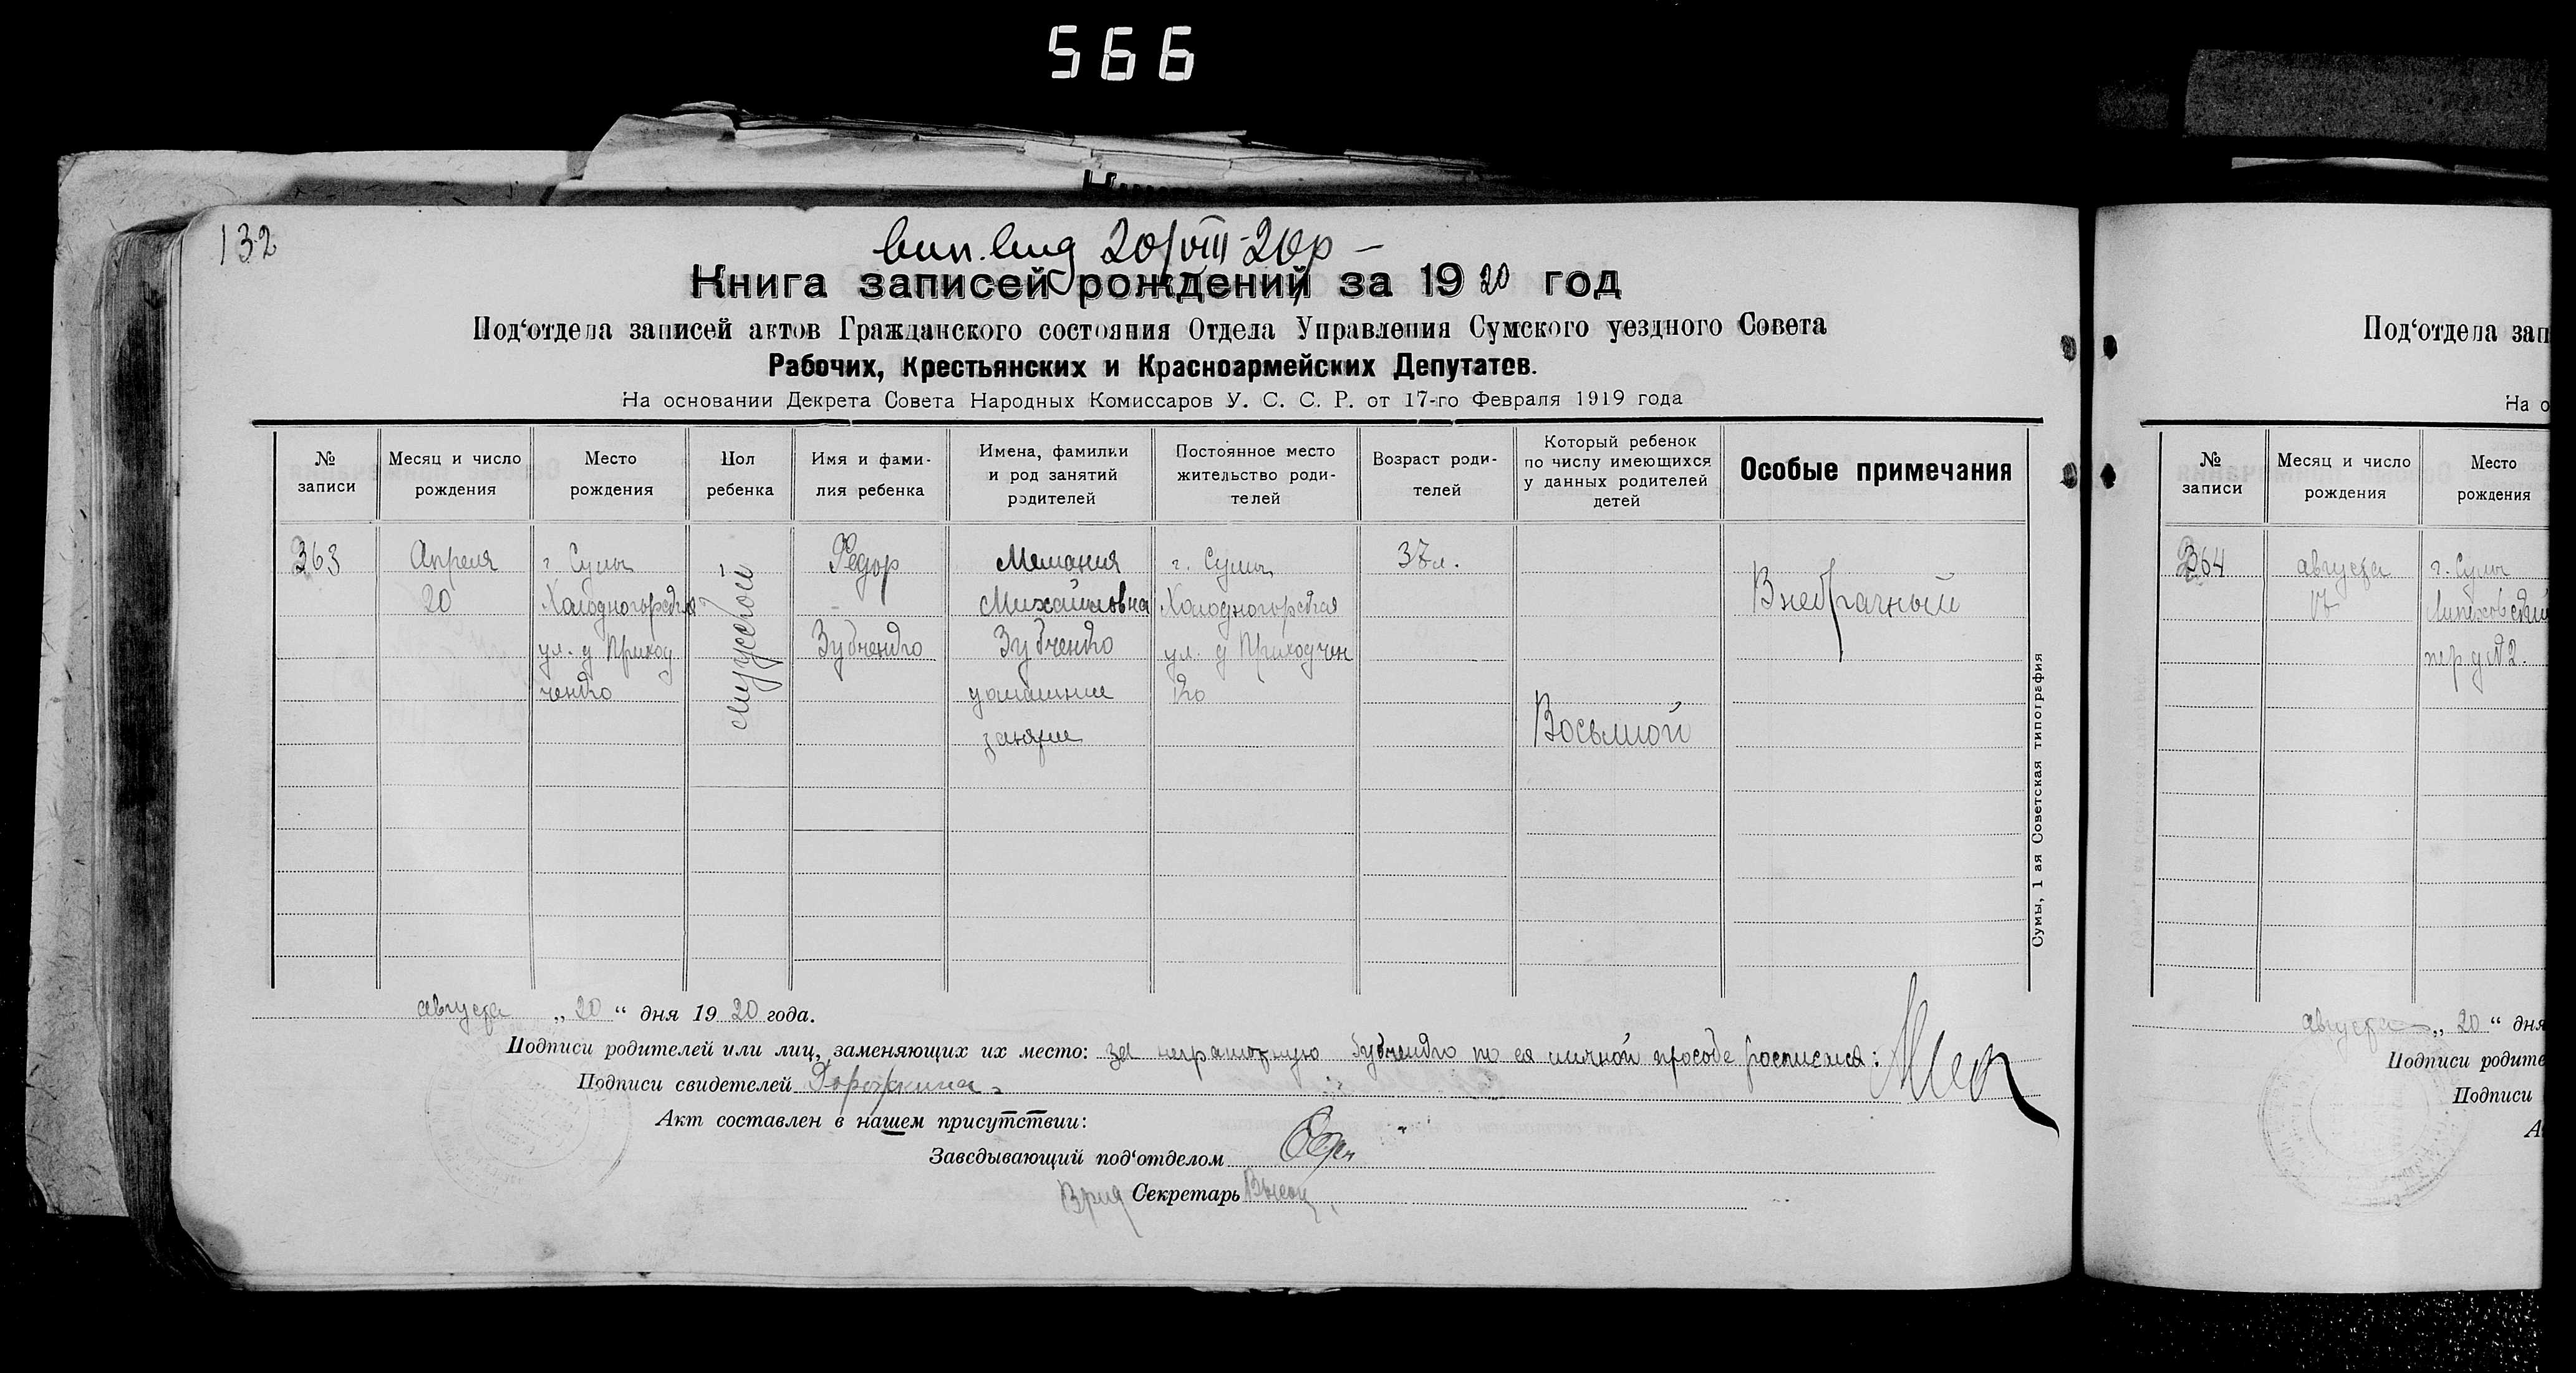 566
132
вип. вид 20/VIII-20р –
Книга записей рождений за 1920 год
Под‘отдела записей актов Гражданского состояния Отдела Управления Сумского уездного Совета
Рабочих, Крестьянских и Красноармейских Депутатов.
На основании Декрета Совета Народных Комиссаров У. С. С. Р. от 17-го Февраля 1919 года
№ записи
Месяц и число рождения
Место рождения
Пол ребенка
Имя и фами-
лия ребенка
Имена, фамилии
и род занятий
родителей
Постоянное место
жительство роди-
телей
Возраст роди-
телей
Который ребенок
по числу имеющихся
у данных родителей
детей
Особые примечания
363
Апреля
20
г. Сумы
Холодногорская
ул. д Приход
ченко
мужской
Федор
Зубченко
Мелания
Михайловна
Зубченко
домашние
занятие
г. Сумы
Холодногорская
ул. д Приходчен
ко
37 л.
Восьмой
Внебрачный
Сумы, 1 ая Советская типография
августа „ 20 “ дня 1920 года.
Подписи родителей или лиц, заменяющих их место: за неграмотную Зубченко по ея личной прозбе росписался:
Подписи свидетелей
Акт составлен в нашем присутствии:
Заведывающий под‘отделом
Врид Секретарь
Под‘отдела зап
На о
№ записи
Месяц и число рождения
Место рождения
364
августа
17
г. Сумы
пер д №2.
августа „ 20 “ дня
Подписи родите
Подписи
А